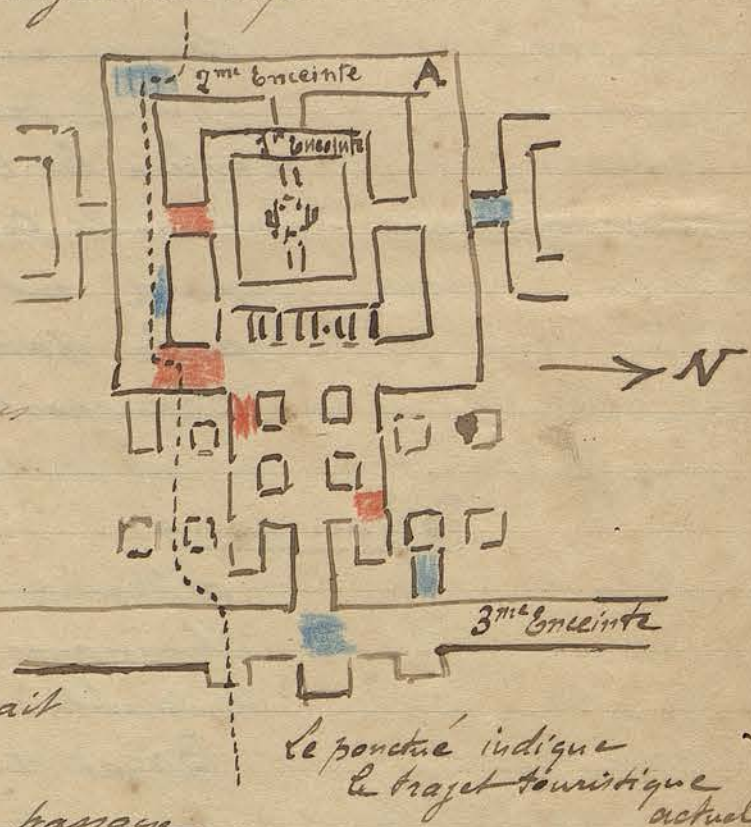 2me Enceinte
A
1r Enceinte
N
3me Enceinte
ait
Le ponctué indique
le trajet touristique
actuel